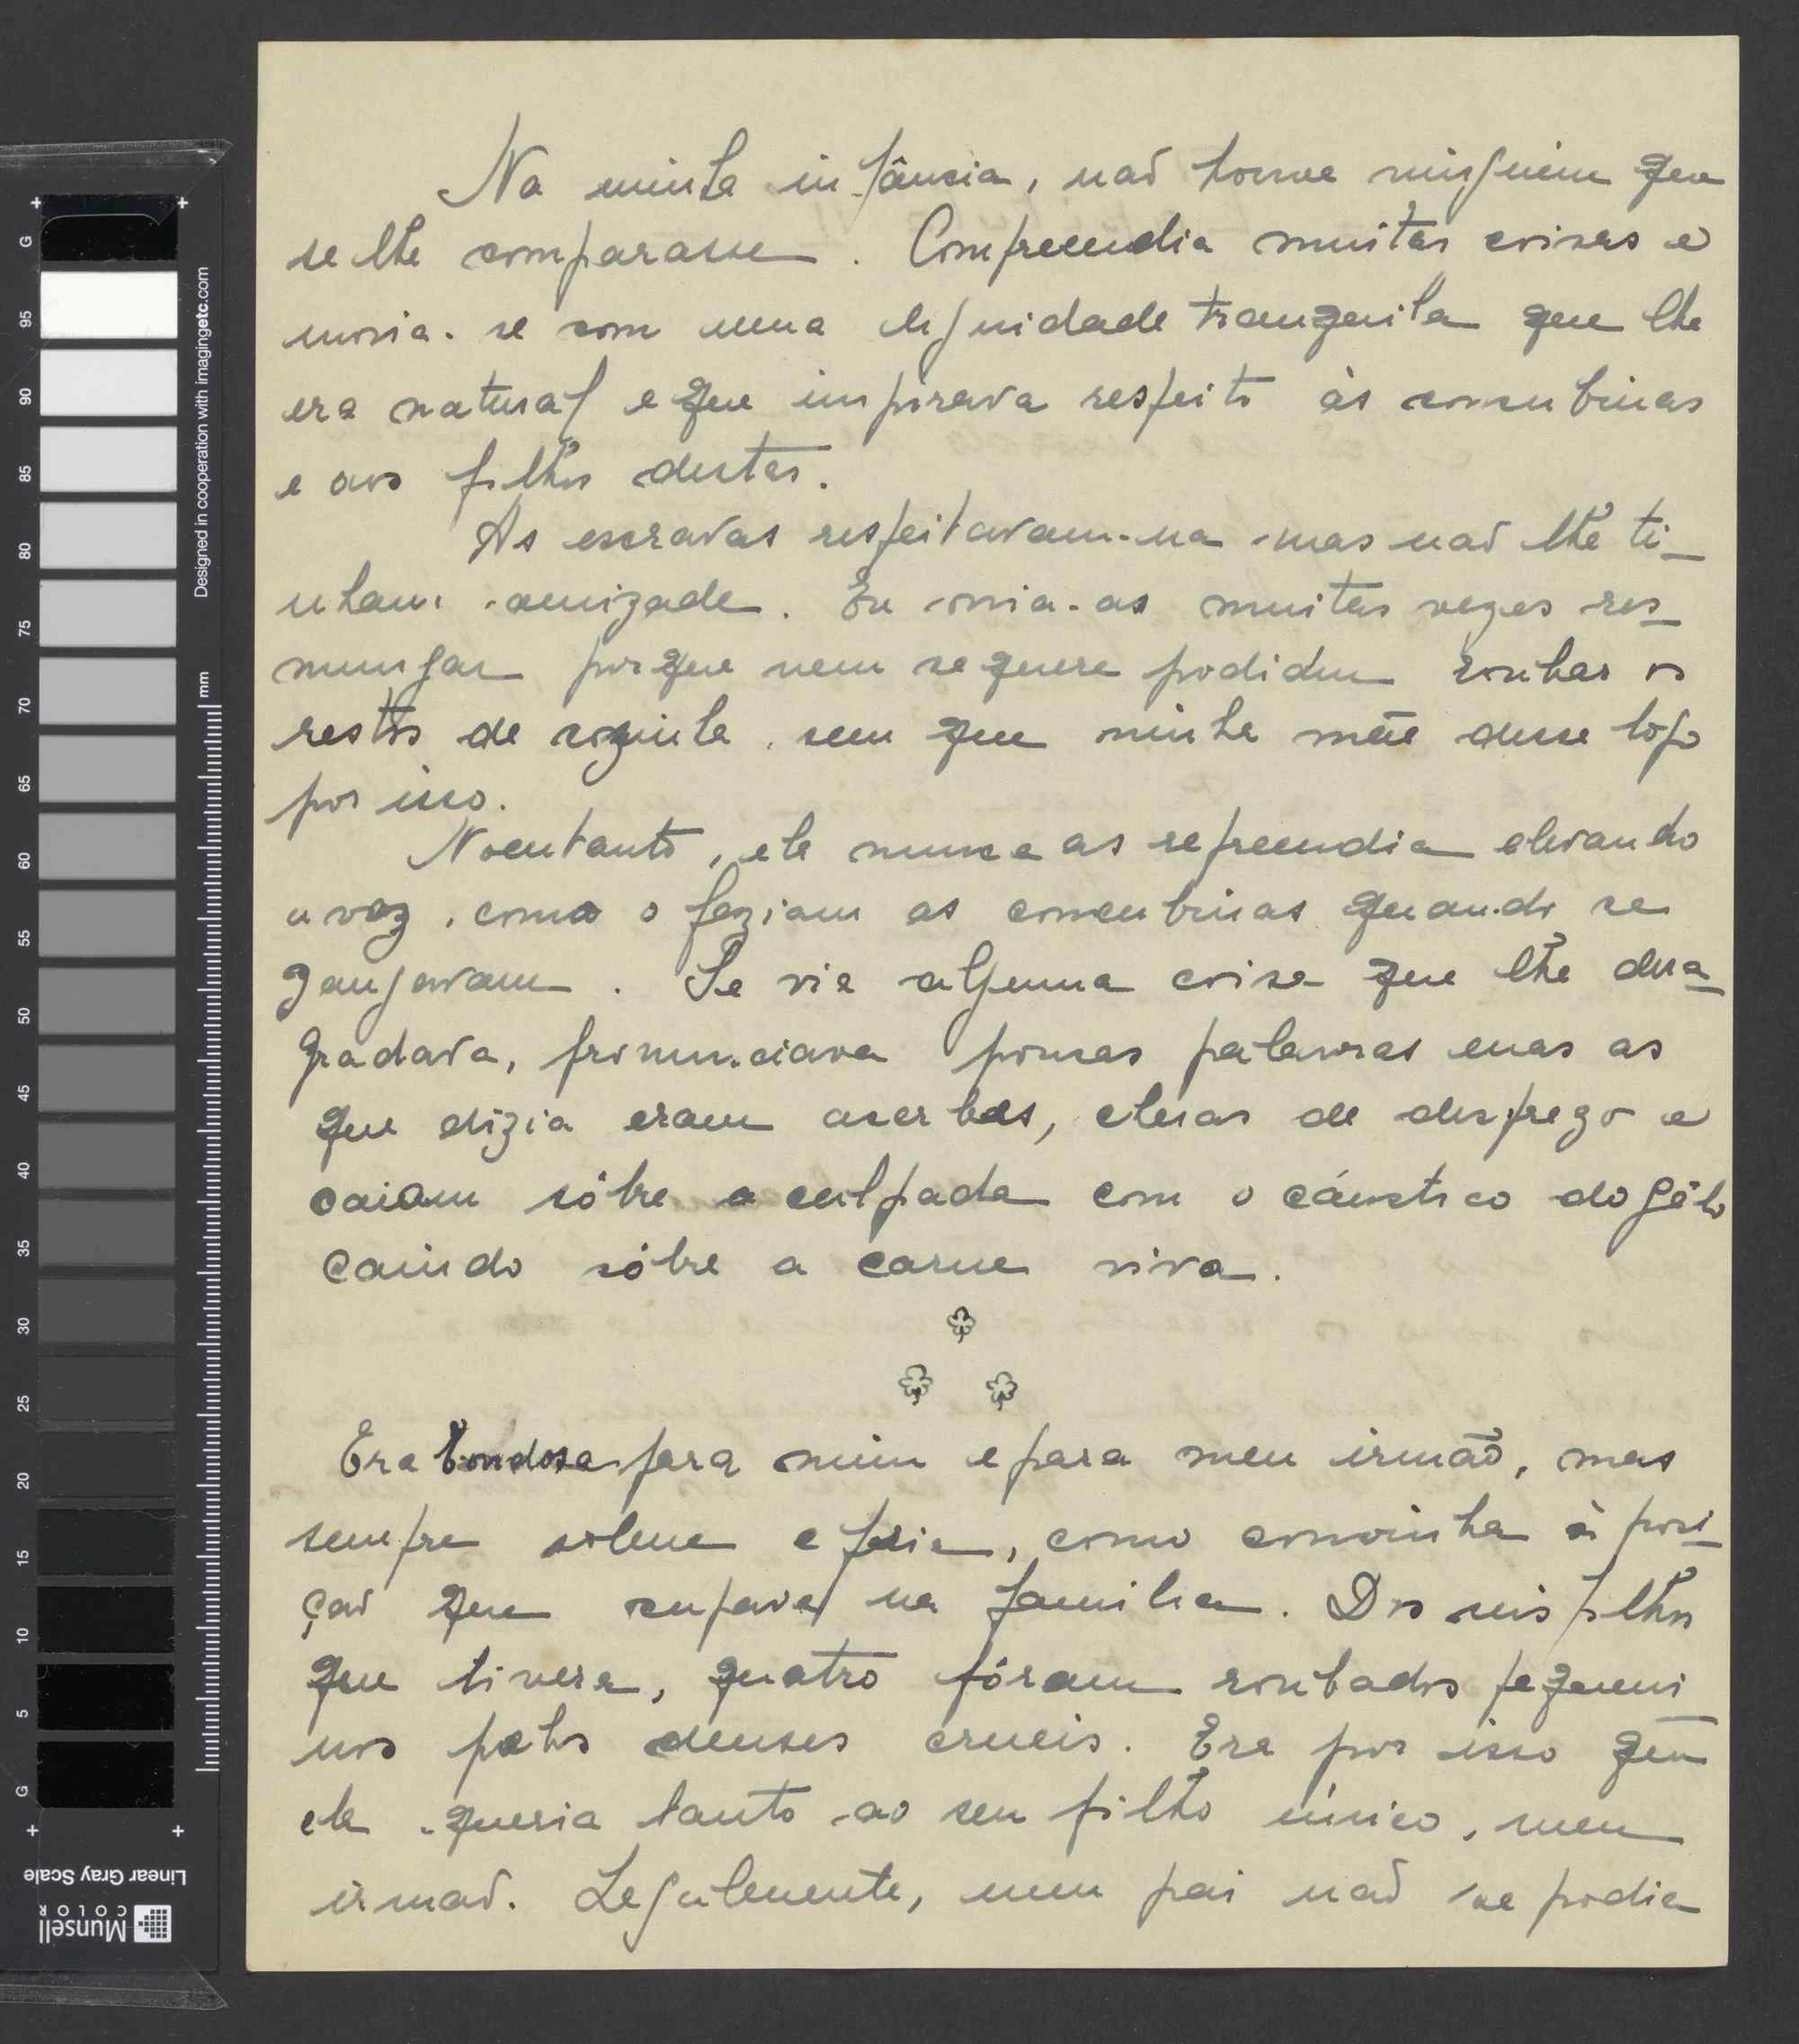 Na minha infância, não houve ninguém que
se lhe comparasse. Compreendia muitas coisas e
movia-se com uma dignidade tranquila que lhe
era natural e que inspirava respeito às concubinas
e aos filhos destas.
As escravas respeitavam-na mas não lhe ti-
nham amizade. Eu ouvia-as muitas vezes res-
mungar porque nem sequere podidm roubar os
restos de cozinha, sem que minha mãe desse logo
por isso.
No entanto, ela nunca as repreendia elevando
a voz, como o faziam as concubinas quando se
zangavam. Se via alguma coisa que lhe desa-
gradava, pronunciava poucas palavras mas as
que dizia eram acerbas, cheias de desprezo e
caiam sôbre a culpada com o cáustico do gêlo
caindo sôbre a carne viva.
Era bondosa para mim e para meu irmão, mas
sempre solene e fria, como convinha à posi-
ção que ocupava na familia. Dos seis filhos
que tivera, quatro fôram roubados pequeni
nos pelos deuses crueis. Era por isso que
ela queria tanto ao seu filho único, meu
irmão. Legalmente, meu pai não se podia
G
95
90
85
80
75
70
65
60
55
50
45
40
35
30
25
20
15
10
5
G
mm
Designed in cooperation with imagingetc.com
Linear Gray Scale
Munsell
COLOR